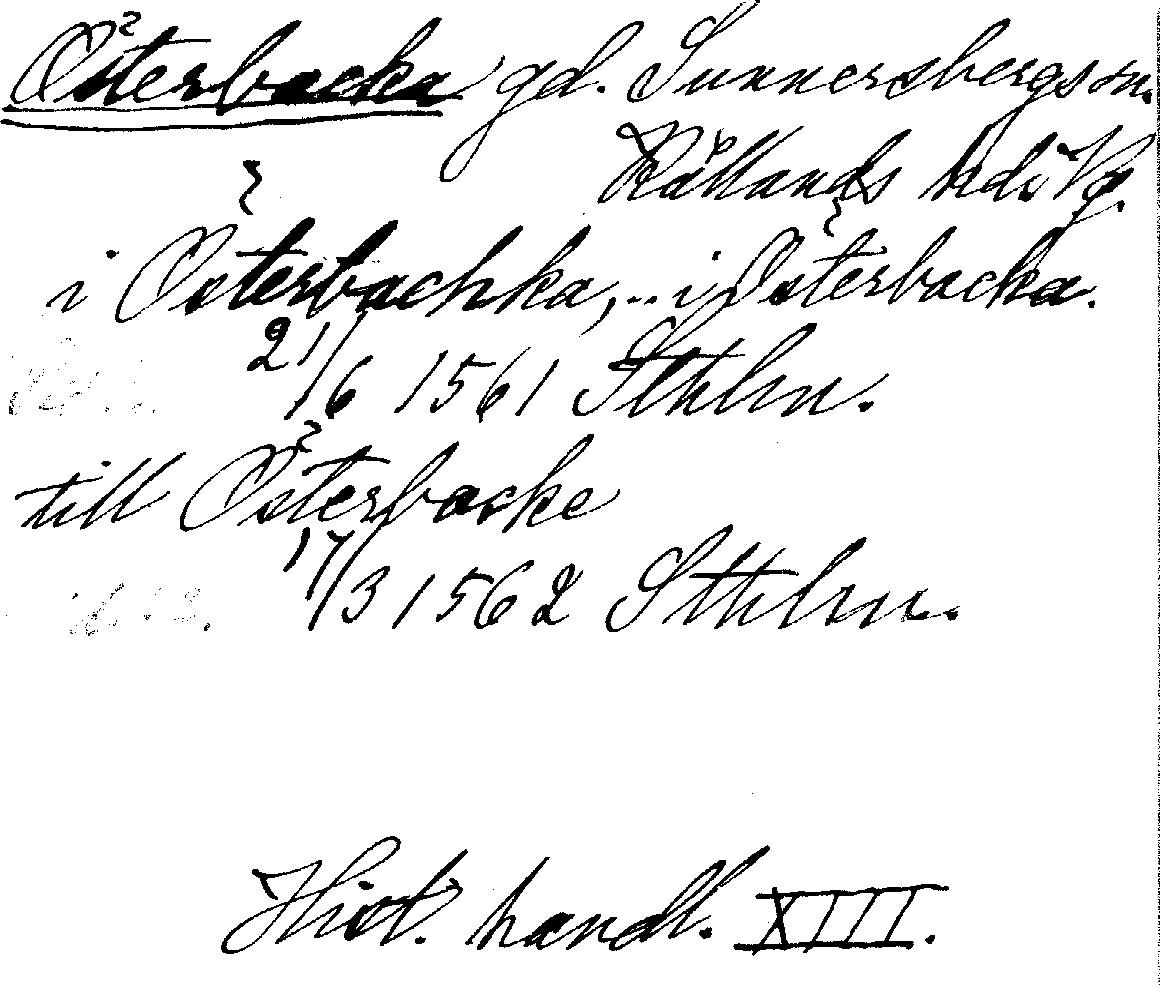 Österbacka gd. Sunnersbergs sn.
Kållands hd. Vg.
i Österbachka, .. i Österbacka.
21/6 1561 Sthlm.
till Österbacke
17/3 1562 Sthlm.
Hist. handl. XIII.